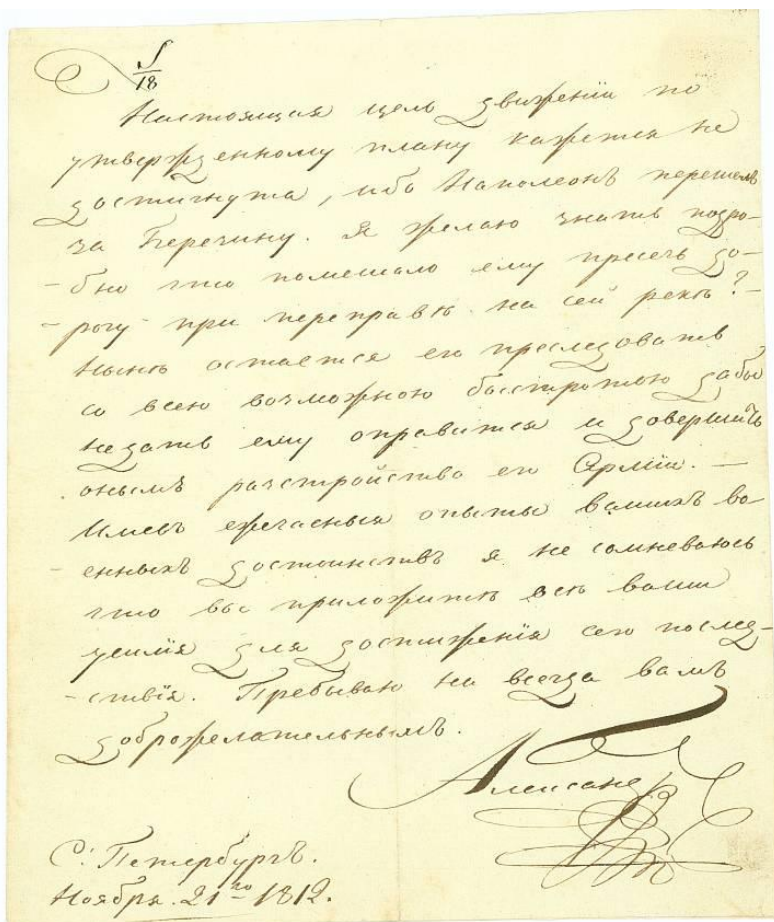 5
18
Настоящая цель движеніи по
утвержденному плану кажется не
достигнута, ибо Наполеонъ перешелъ
за Березину. Я желаю знать подро-
-бно что помешало ему пресечь до-
-рогу при переправѣ на сей рекѣ? -
Нынѣ остается его преследовать
со всею возможною быстротою дабы
недать ему оправится и довершить
онымъ разстройство его Арміи. —
Имевъ ежечасныя опыты вашихъ во-
-енныхъ достоинствъ я не сомневаюсь
что вы приложите всѣ ваши
усилія для достиженія сего послед-
-ствія. Пребываю на всегда вамъ
доброжелательнымъ.
Александръ
С: Петербургъ.
Ноября. 21го 1812.